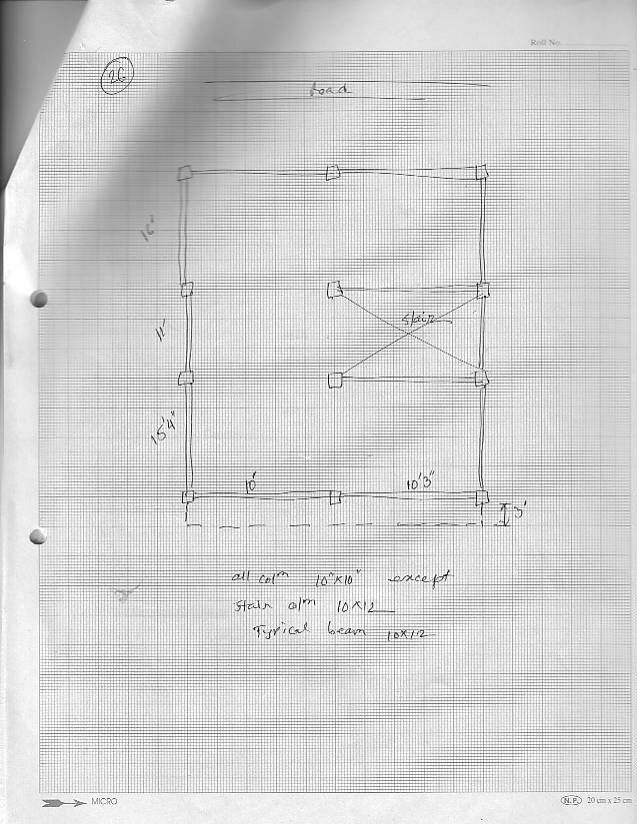 Roll No.
26
Road
16'
stair
11'
15'4"
10'
10'3"
3'
all colm 10"x10" except
stair colm 10x12
Typical beam 10x12
MICRO
N.P. 20 cm x 25 cm